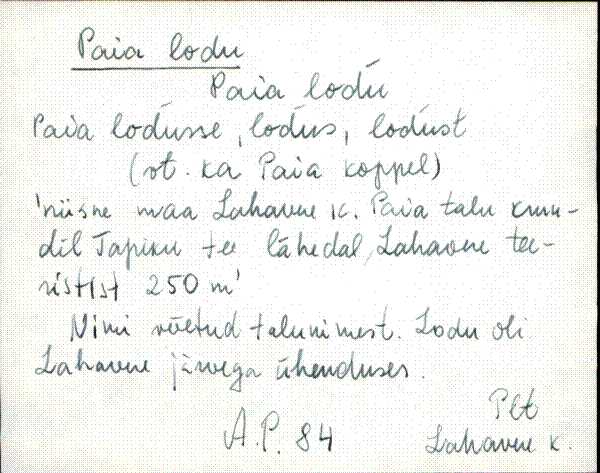 Paia lodu
Paia lodu
Paia lodusse, lodus, lodust
(vt. ka Paia koppel)
'niiske maa Lahavere k. Paia talu krun-
dil Tapiku tee lähedal, Lahavere tee-
ristist 250 m'
Nimi võetud talunimest. Lodu oli
Lahavere järvega ühenduses.
Plt
A.P. 84 Lahavere k.